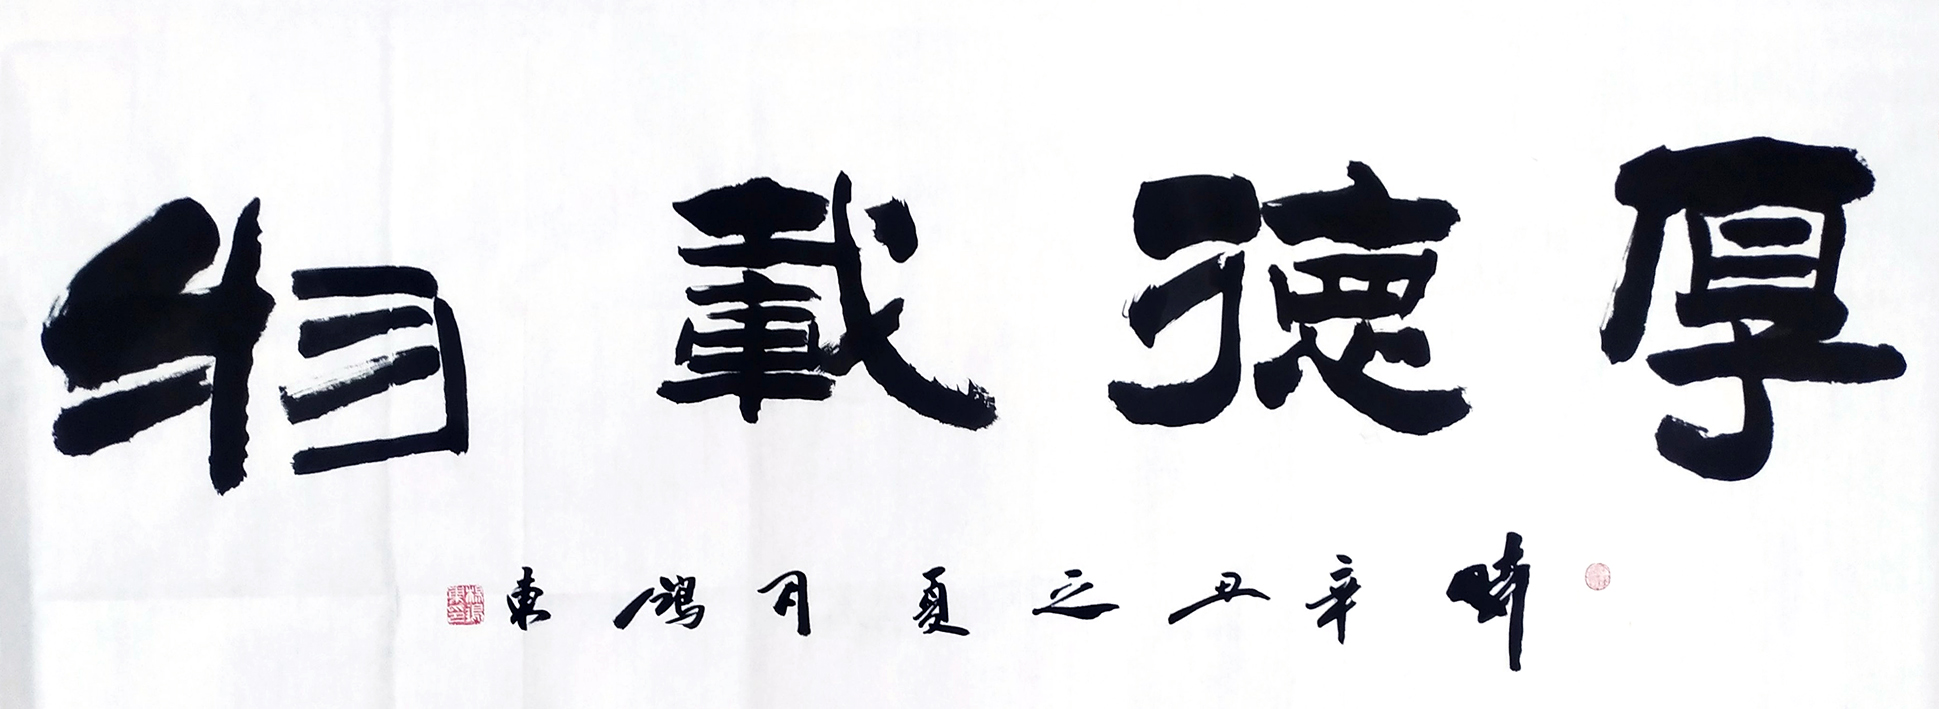 厚德載物
時辛丑之夏月鴻東